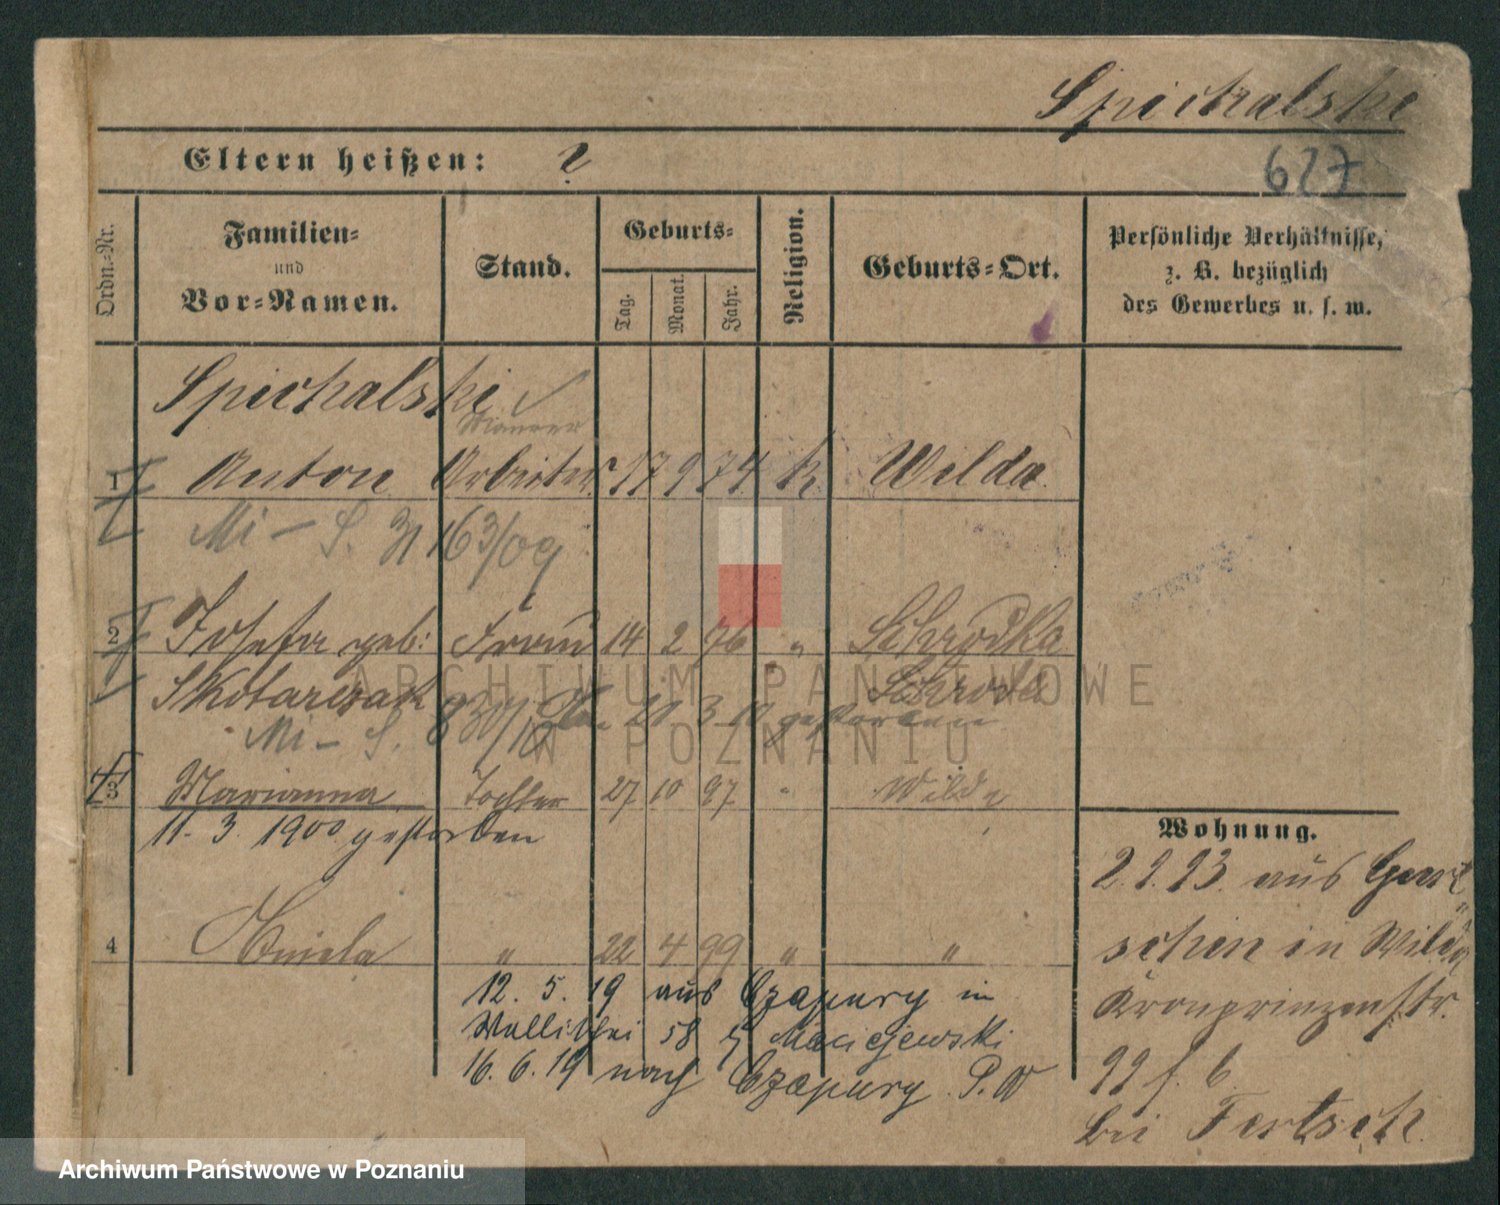 Spichalski
Eltern heißen: ?
627
Ordn.-Nr.
Familien-
und
Vor-Namen.
Stand.
Geburts-
Tag.
Monat.
Jahr.
Religion.
Geburts-Ort.
Persönliche Verhältnisse,
z. B. bezüglich
des Gewerbes u. s. w.
Spichalski
Maurer
1 Anton Arbeiter 17 9 74 k Wilda
Mi - S. 163/09
2 Josefa geb: Frau 14 2 76 " Schrodka
Skotarczak Schroda
Mi - S. 830/10 20 3 10 gestorben
3 Marianna Tochter 27 10 97 " Wilda
11. 3. 1900 gestorben
4 Aniela " 22 4 99 " "
12. 5. 19 aus Czapury in
Wallischei 58 Maciejewski
16. 6. 19 nach Czapury P. W
Wohnung.
2.9.93. aus Gurt-
schin in Wilda
Kronprinzenstr.
99 f. 6
bei Fertsch
ARCHIWUM PAŃSTWOWE
W POZNANIU
Archiwum Państwowe w Poznaniu